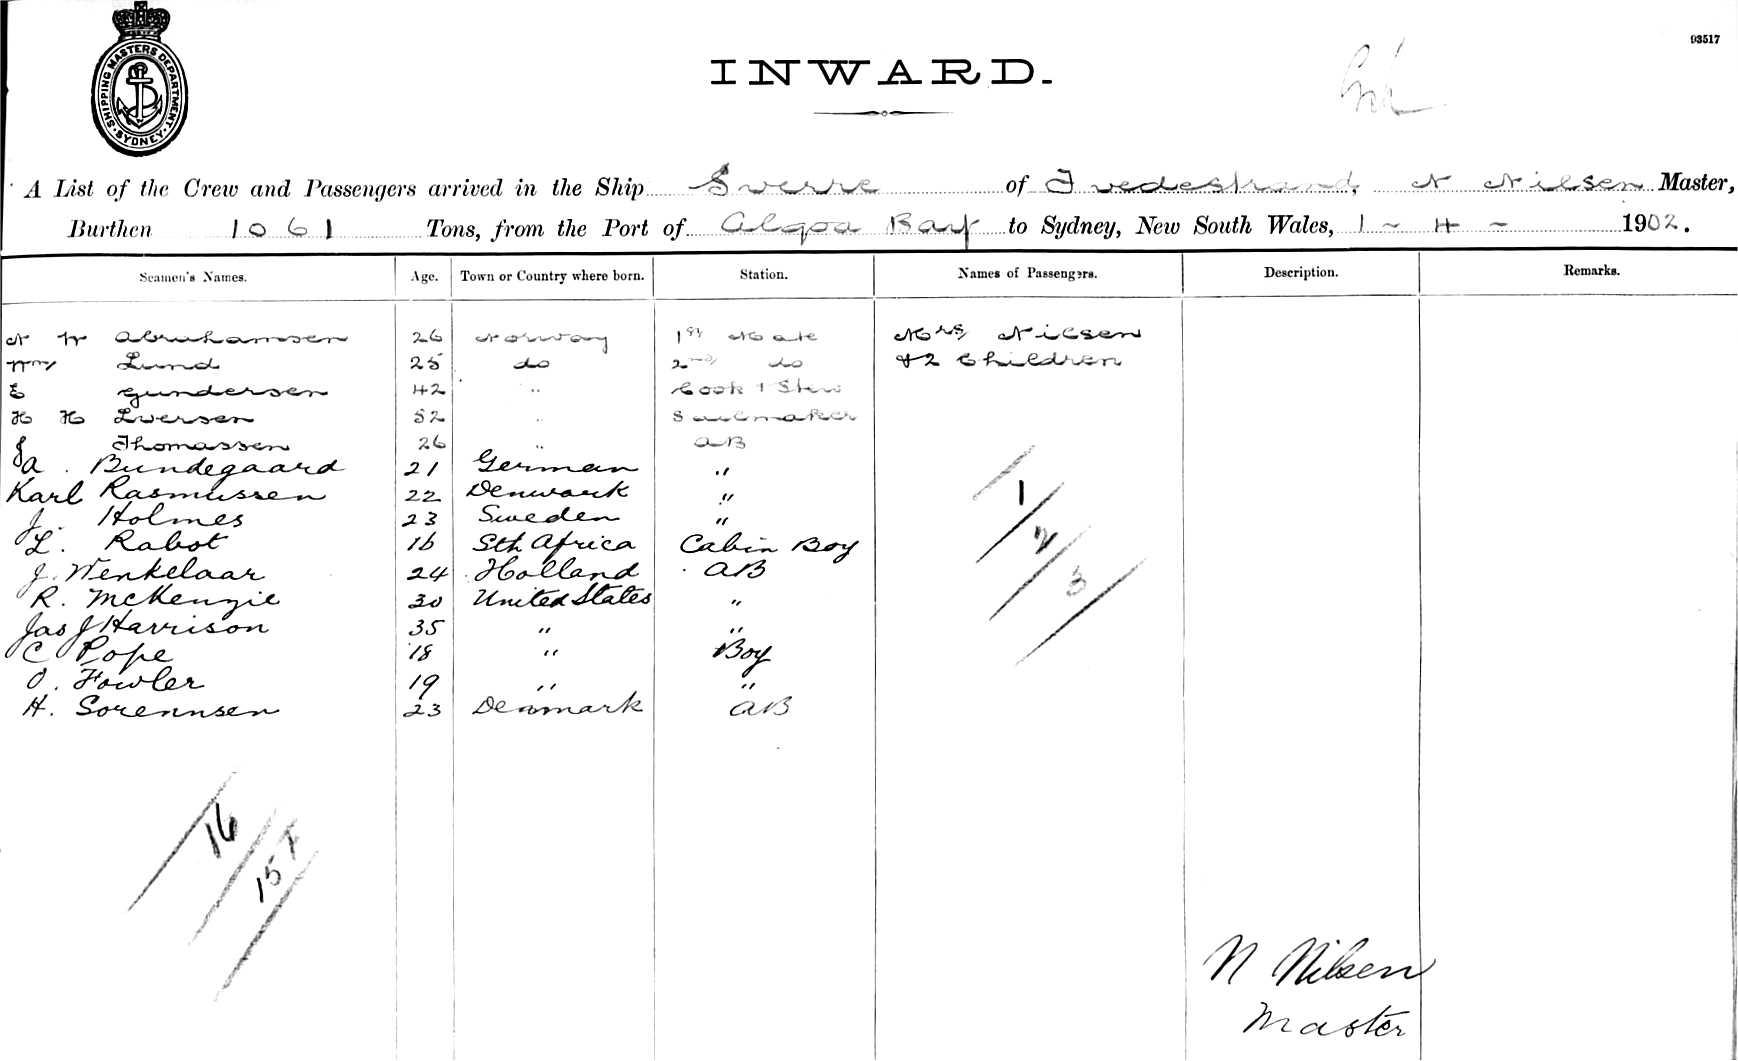 SHIPPING MASTERS DEPARTMENT. SYDNEY.
93517
INWARD.
A List of the Crew and Passengers arrived in the Ship Sverre of Tvedestrand, N Nilsen Master,
Burthen 1061 Tons, from the Port of Algoa Bay to Sydney, New South Wales, 1 - 4 - 1902.
Seamen's Names. Age. Town or Country where born. Station. Names of Passengers. Description. Remarks.
N W Abrahamsen 26 Norway 1st Mate Mrs Nilsen
Wm Lund 25 do 2nd do & 2 Children
E Gundersen 42 " Cook & Stew
H H Iversen 52 " Sailmaker
J Thomassen 26 " AB
A. Bundegaard 21 German "
Karl Rasmussen 22 Denmark "
J. Holmes 23 Sweden "
L. Rabot 16 Sth Africa Cabin Boy
J. Wenkelaar 24 Holland AB
R. McKenzie 30 United States "
Jas J Harrison 35 " "
C Pope 18 " Boy
O. Fowler 19 " "
H. Sorennsen 23 Denmark AB
1
2
3
16
15
N Nilsen
Master